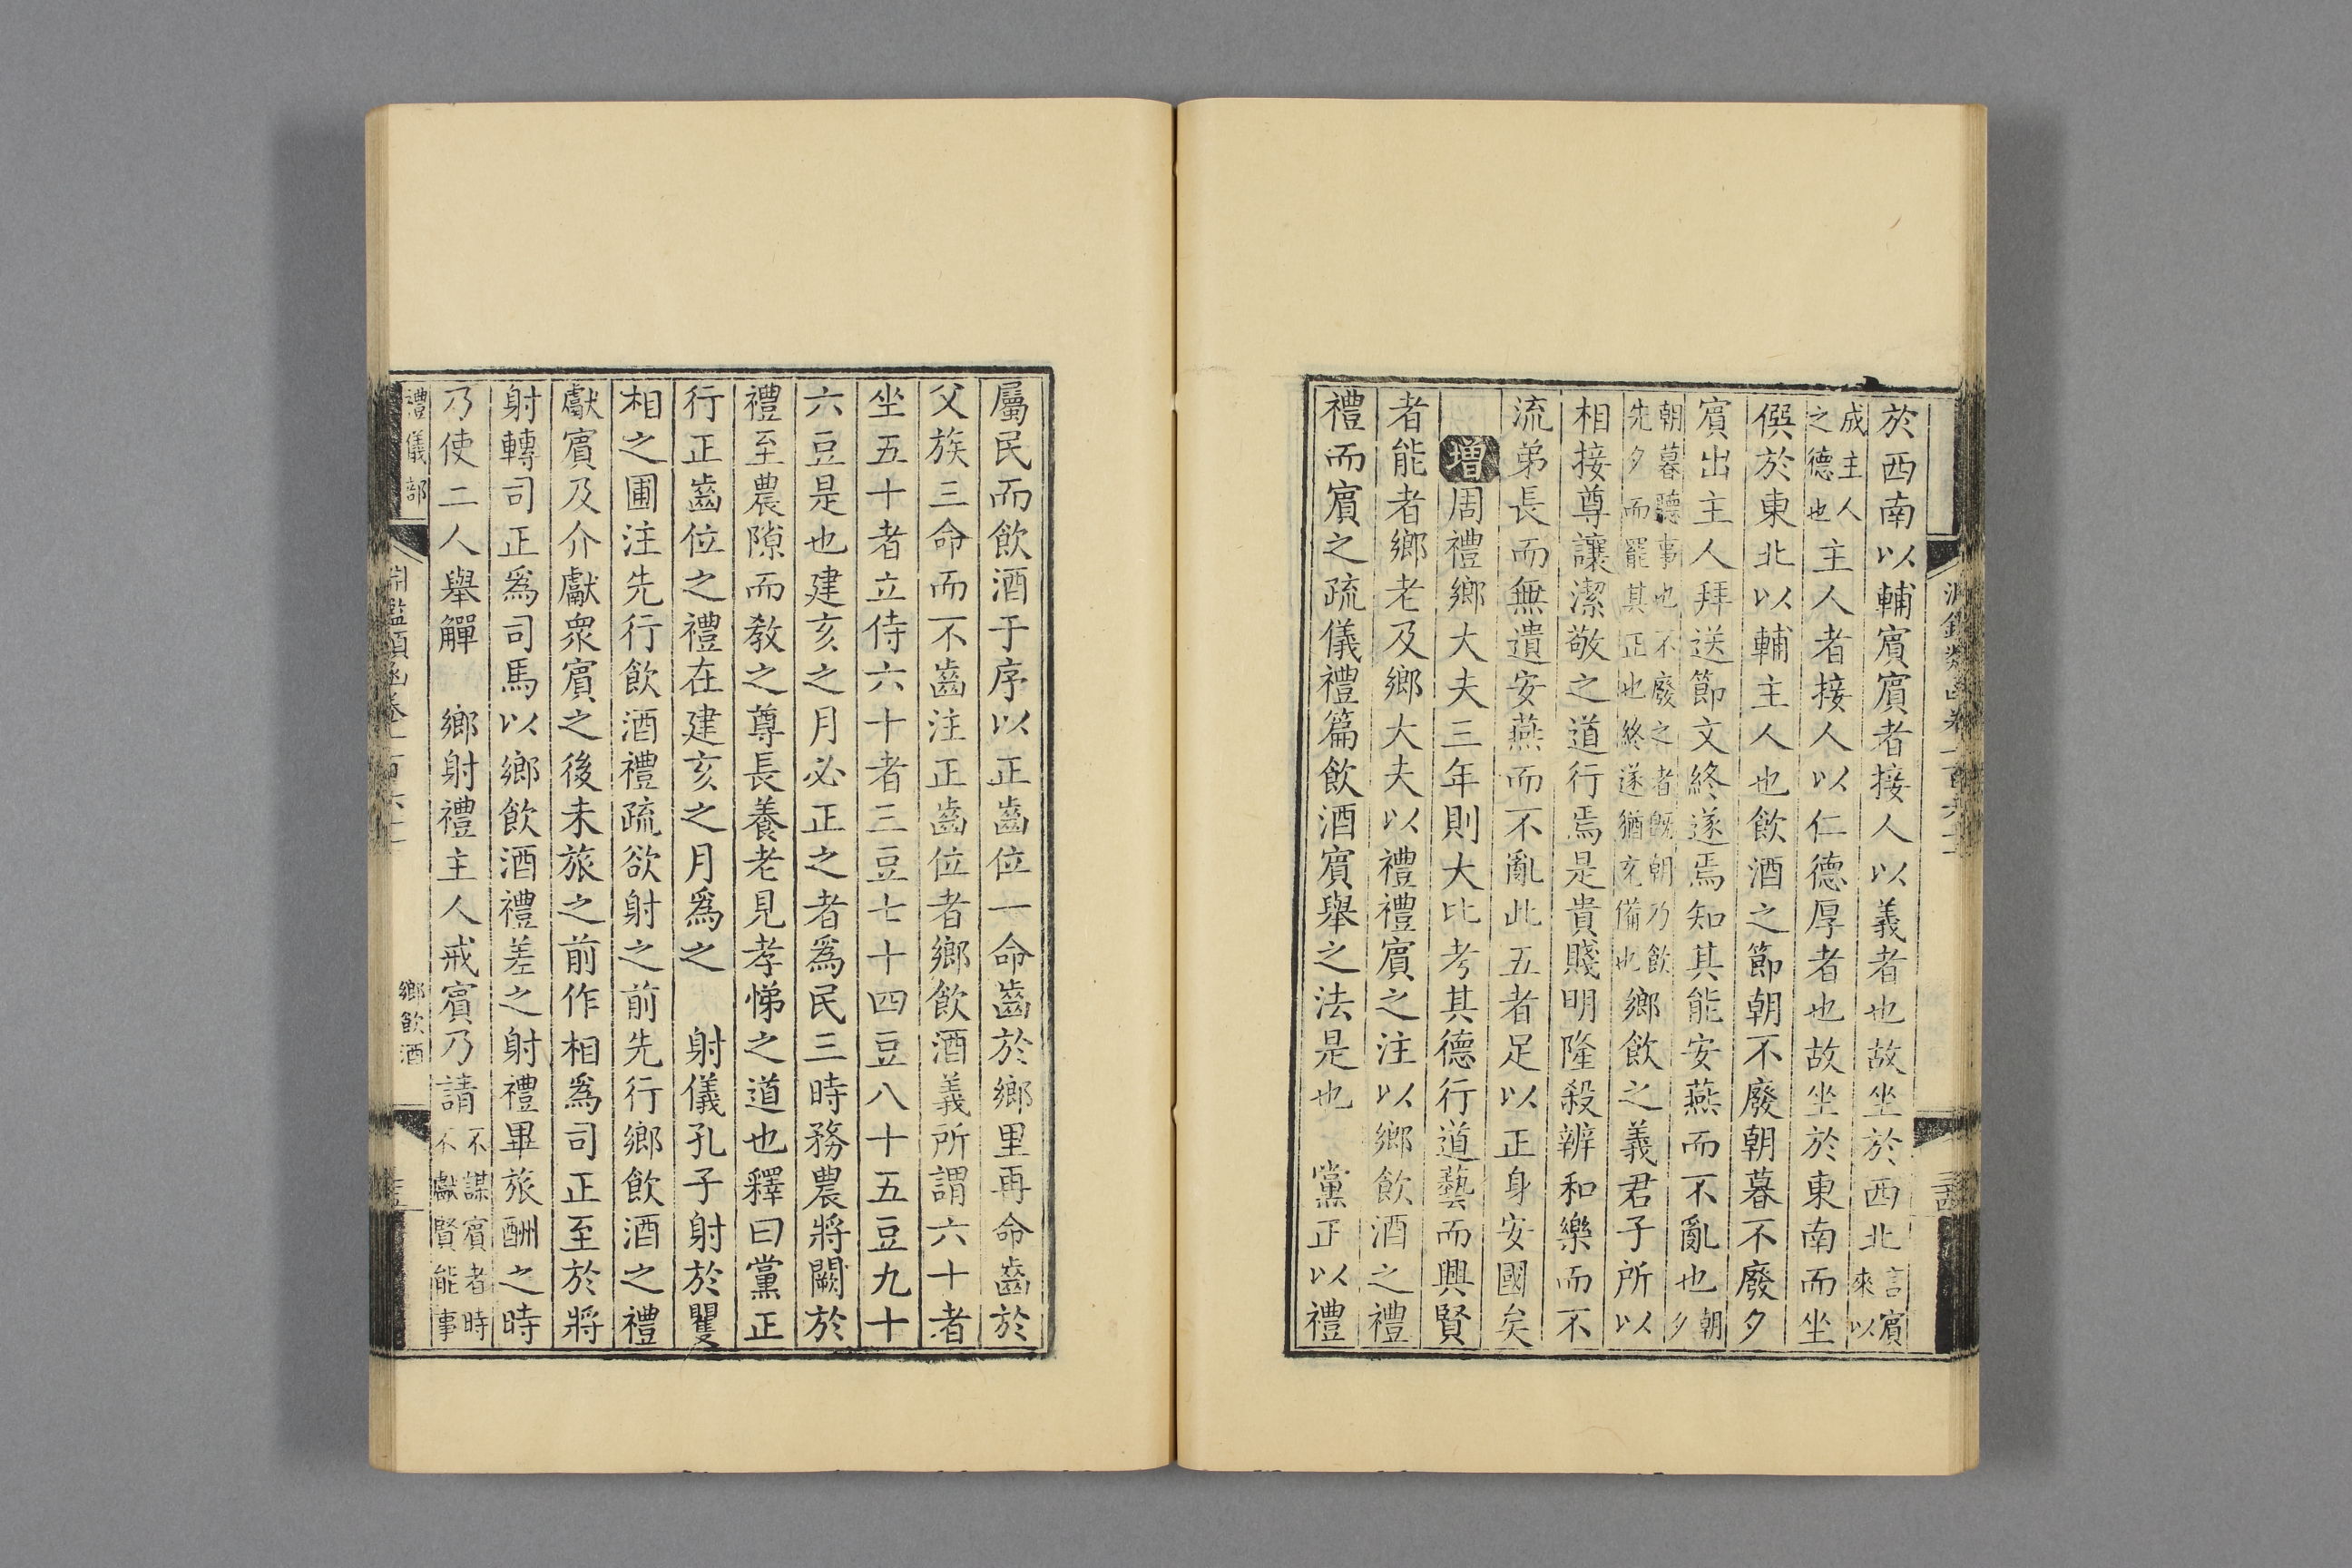 於西南以輔賔賔者接人以義者也故坐於西北言賔來以
成主人之德也主人者接人以仁德厚者也故坐於東南而坐
僎於東北以輔主人也飲酒之節朝不廢朝暮不廢夕
賔出主人拜送節文終遂焉知其能安燕而不亂也朝夕
朝暮聽事也不廢之者既朝乃飲先夕而罷其正也終遂猶充備也鄉飲之義君子所以
相接尊讓潔敬之道行焉是貴賤明隆殺辨和樂而不
流弟長而無遺安燕而不亂此五者足以正身安國矣
增周禮鄉大夫三年則大比考其德行道藝而興賢
者能者鄉老及鄉大夫以禮禮賔之注以鄉飲酒之禮
禮而賔之疏儀禮篇飲酒賔舉之法是也　黨正以禮
屬民而飲酒于序以正齒位一命齒於鄉里再命齒於
父族三命而不齒注正齒位者鄉飲酒義所謂六十者
坐五十者立侍六十者三豆七十四豆八十五豆九十
六豆是也建亥之月必正之者爲民三時務農將闕於
禮至農隙而教之尊長養老見孝悌之道也釋曰黨正
行正齒位之禮在建亥之月爲之　射儀孔子射於矍
相之圃注先行飲酒禮疏欲射之前先行鄉飲酒之禮
獻賔及介獻眾賔之後未旅之前作相爲司正至於將
射轉司正爲司馬以鄉飲酒禮差之射禮畢旅酬之時
乃使二人舉觶　鄉射禮主人戒賔乃請不謀賔者時不獻賢能事
禮儀部
淵鑑類函卷一百六十
鄉飲酒